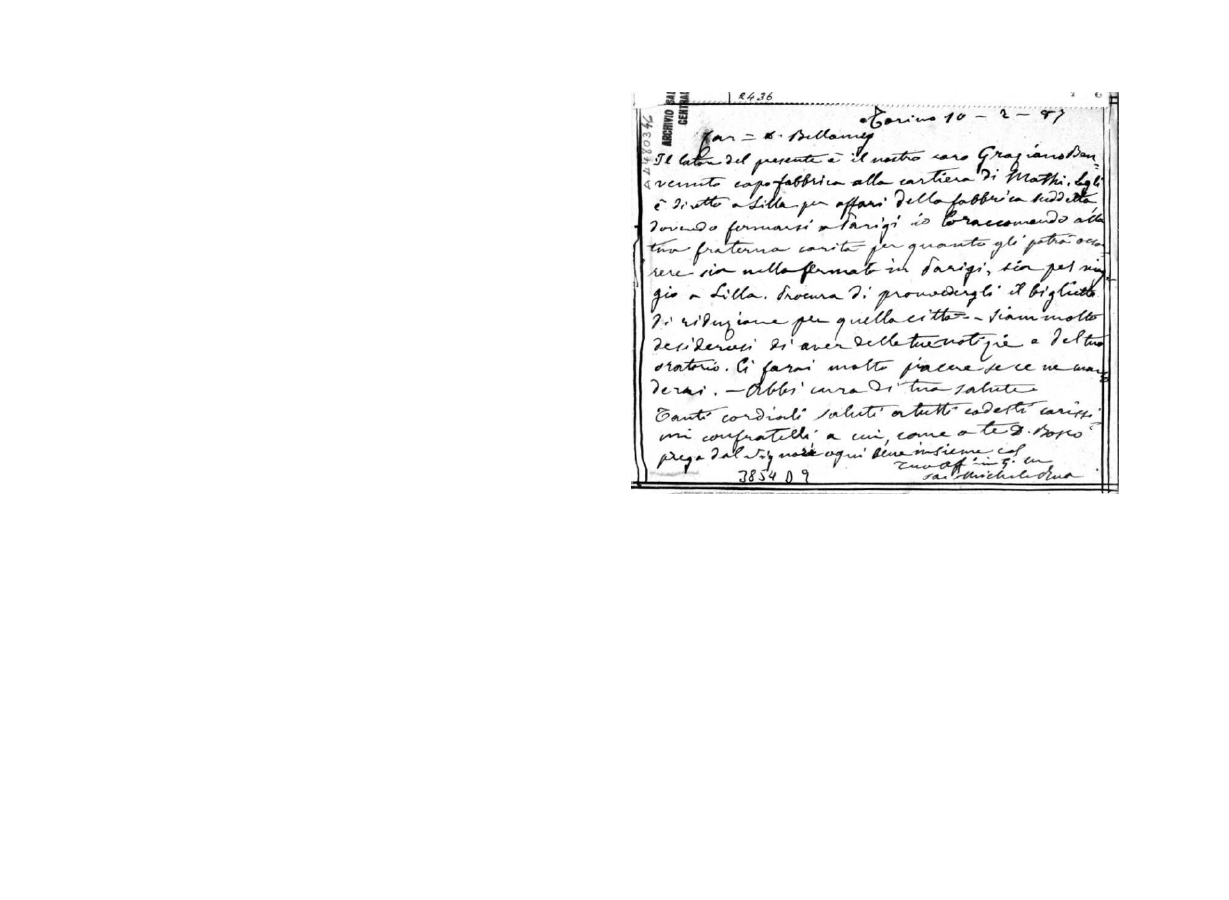 2436
ARCHIVIO SAL
CENTRAL
A2480346
Torino 10 - 2 - 87
Car = D. Bellamy
Il lator del presente è il nostro caro Graziano Ben=
venuto capo fabbrica alla cartiera di Mathi. Egli
è diretto a Lilla per affari della fabbrica suddetta
dovendo fermarsi a Parigi io lo raccomando alla
tua fraterna carità per quanto gli potrà occor
rere sia nella fermata in Parigi, sia pel viag
gio a Lilla. Procura di provvedergli il biglietto
di riduzione per quella città - Siam molto
desiderosi di aver delle tue notizie e del tuo
oratorio. Ci farai molto piacere se ce ne man
derai. - Abbi cura di tua salute
Tanti cordiali saluti a tutti codesti carissi
mi confratelli a cui, come a te D. Bosco
prega dal Signore ogni bene insieme col
tuo aff in G. 
Sac Michele Rua
3854 D 9